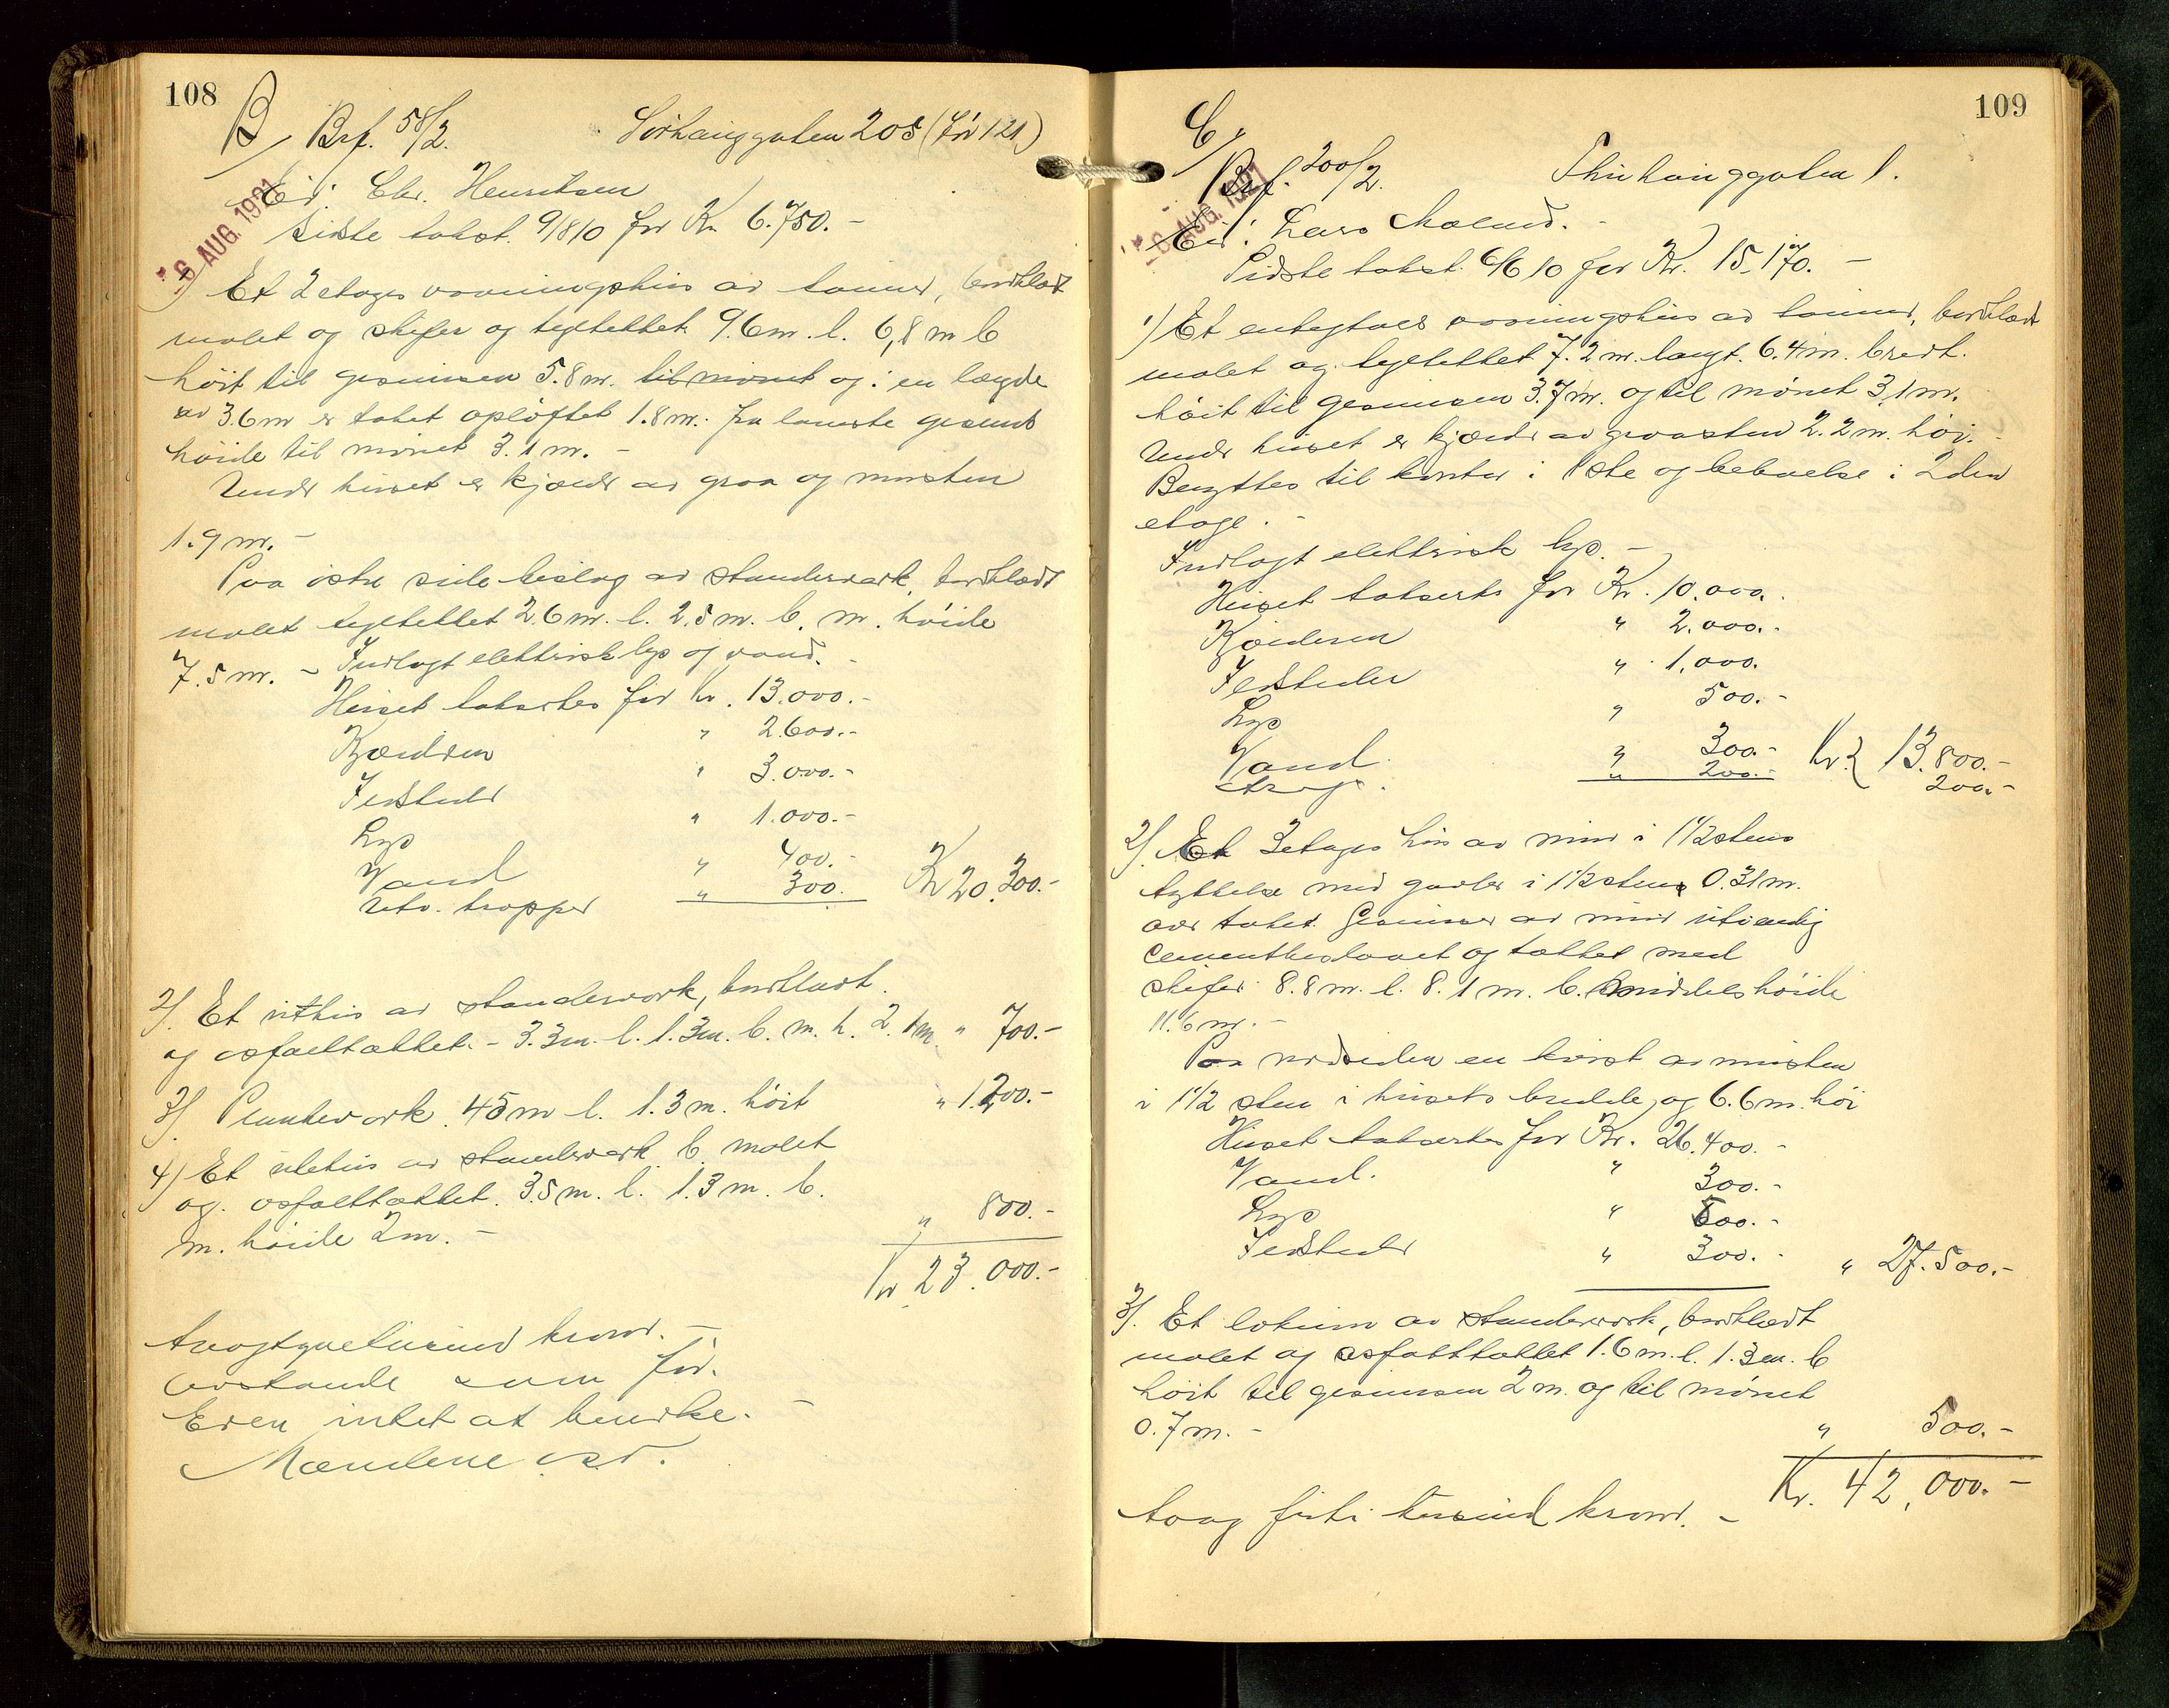 108
B/ Brf. 58/2. Sørhauggaten 205 (Før 121)
Ei: Chr. Henriksen
6 AUG. 1921
Sidste takst. 9/8 10 for Kr. 6.750.-
1) Et 2 etages vaaningshus av tømmer, bordklædt
malet og skifer og tegltekket 9.6 m. l. 6,8 m b
høit til gesimsen 5.8 m. til mønet og i en længde
av 3.6 m er taket opløftet 1.8 m. fra laveste gesims
høide til mønet 3.1 m. -
Under huset er kjælder av graa og mursten
1.9 m. -
Paa østre side beslag av standerverk, bordklædt
malet tegltekket 2.6 m. l. 2.5 m. b. m. høide
7.5 m. - Indlagt elektrisk lys og vand. -
Huset taksertes for Kr. 13.000.-
Kjælderen " 2.600.-
Ildsteder " 3.000.-
Lys " 1.000.-
Vand " 400.-
Utv. trapper " 300. Kr 20.300.-
2). Et uthus av standerverk, bordklædt.
og asfalttækket. - 3.3 m. l. 1.3 m. b. m. h. 2.1 m. " 700.-
3). Plankeverk. 45 m l. 1.3 m. høit " 1.200.-
4) Et utehus av standerverk b. malet
og. asfalttækket. 3.5 m. l. 1.3 m. b.
m. høide 2 m. - " 800.-
Kr 23.000.-
treogtyvetusind kroner. -
Avstande som før.
Eieren intet at bemerke. -
Mændene
109
C/
Brf. 200/2. Thuhauggaten 1.
6 AUG. 1921
Ei: Lars Maland. -
Sidste takst. 6/6 10 for Kr. 15.170. -
1) Et enetages vaaningshus av tømmer, bordklædt
malet og tegltekket 7.2 m. langt. 6.4 m. bredt.
høit til gesimsen 3.7 m. og til mønet 3.1 m.
Under huset er kjælder av graasten 2.2 m. høi. -
Benyttes til kontor i 1ste og beboelse i 2den
etage. -
Indlagt elektrisk lys. -
Huset taksertes for Kr. 10.000.
Kjælderen " 2.000.-
Ildsteder " 1.000.
Lys " 500.-
Vand. " 300.- Kr. 13.800.-
" 200.- 200.-
2). Et 3 etages hus av mur i 1 1/2 stens
tykkelse med gavler i 1 1/2 stens 0.31 m.
over taket. Gesimser av mur utvendig
cementbeslaaet og tækket med
skifer 8.8 m. l. 8.1 m. b. middels høide
11.6 m. -
Paa nordsiden en kvist av mursten
i 1 1/2 sten i husets bredde, og 6.6 m. høi
Huset taksertes for Kr. 26.400.-
Vand. " 300.-
Lys " 500.-
Ildsteder " 300.- " 27.500.-
3). Et lokum av standerverk, bordklædt
malet og asfalttækket 1.6 m. l. 1.3 m. b
høit til gesimsen 2 m. og til mønet
0.7 m. - " 500.-
Kr. 42.000.-
toog firti tusind kroner. -